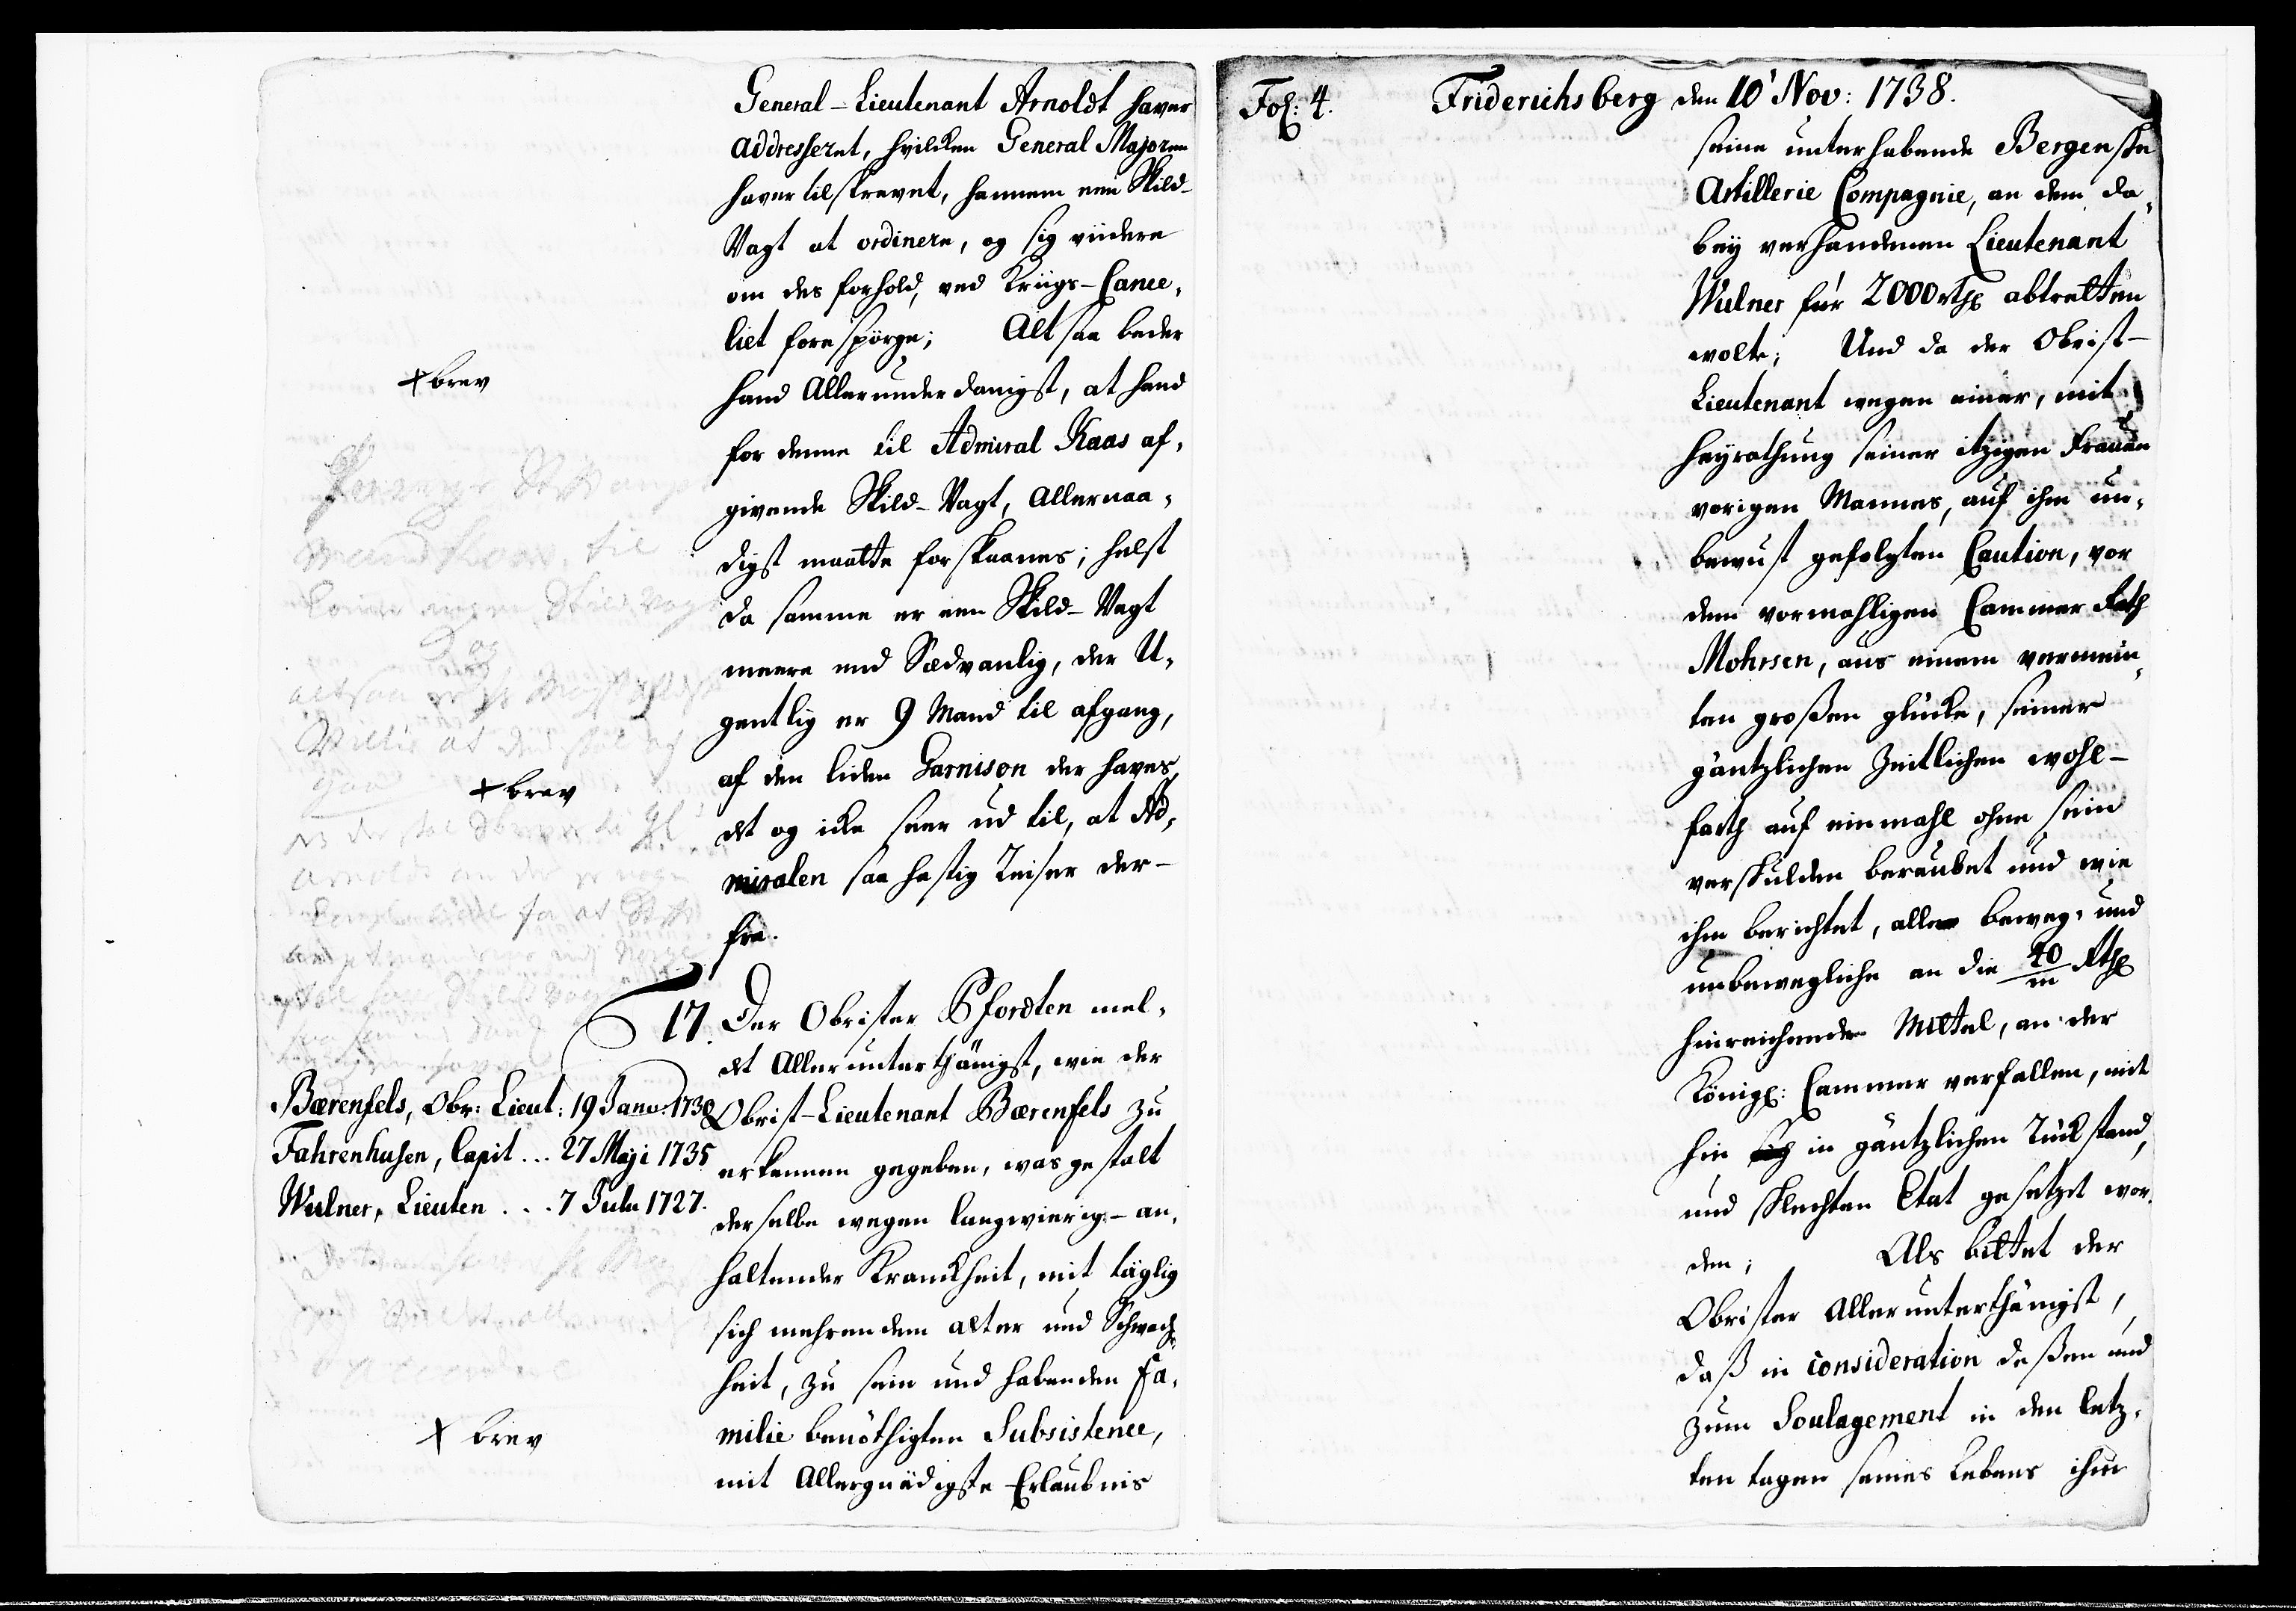 General-Lieutenant Arnoldt haver
addresseret, hvilcken General Majoren
haver tilskrevet, hannem een Skild-
Vagt at ordinere, og sig viidere
om des forhold, ved Kriigs-Cance,
liet forespörge; Altsaa beder
hand Allerunderdanigst, at hand
for denne til Admiral Kaas af,
givende Skild-Vagt, Allernaa,
digst maatte forskaanes; helst
da samme er een Skild-Vagt
meere end Sædvanlig, der U,
gentlig er 9 Mand til afgang,
af den liden Garnison der haves,
det og icke seer ud til, at Ad,
miralen saa hastig Reiser der-
fra.
+ brev
+ brev
17. Der Obrister Pfordten mel,
det Allerunterthänigst, wie der
Obrist-Lieutenant Bærenfels zu
erkennen gegeben, was gestalt
derselbe wegen langwierig-an,
haltender Kranckheit, mit täglig
sich mehrendem alter und Schwach,
heit, zu sein und habenden Fa,
milie benöthigten Subsistence,
mit Allergnädigste Erlaubnis
Bærenfels, Obr: Lieut: 19 Janv. 1730
Fahrenhusen, Capit ... 27 Maji 1735
Wulner, Lieuten ... 7 Julii 1727.
+ brev
Fol: 4. Friderichsberg den 10' Nov: 1738.
seine unterhabende Bergenske
Artillerie Compagnie, an dem da,
bey verhandenen Lieutenant
Wulner für 2000 rthl abtretten
wolte; Und da der Obrist-
Lieutenant wegen einer, mit
heyrathung seiner itzigen Frauen
vorigen Mannes, auf ihm un,
bewust gefolgten Caution, vor
dem vormahligen Cammer Rath
Mohrsen, aus einem vermein,
ten großen glücke, seiner
gäntzlichen Zeitlichen wohl-
farth auf einmahl ohne sein
verschulden beraubet und wie
ihm berichtet, alle beweg- und
unbewegliche an die 40/m Rthl
hinreichende Mittel, an der
Königl: Cammer verfallen, mit
hin in gäntzlichen Rückstand,
und schlechten Etat gesetzet wor,
den; Als bittet der
Obrister Allerunterthänigst,
daß in consideration deßen und
zum Soulagement in den letz,
ten tagen seines Lebens ihm